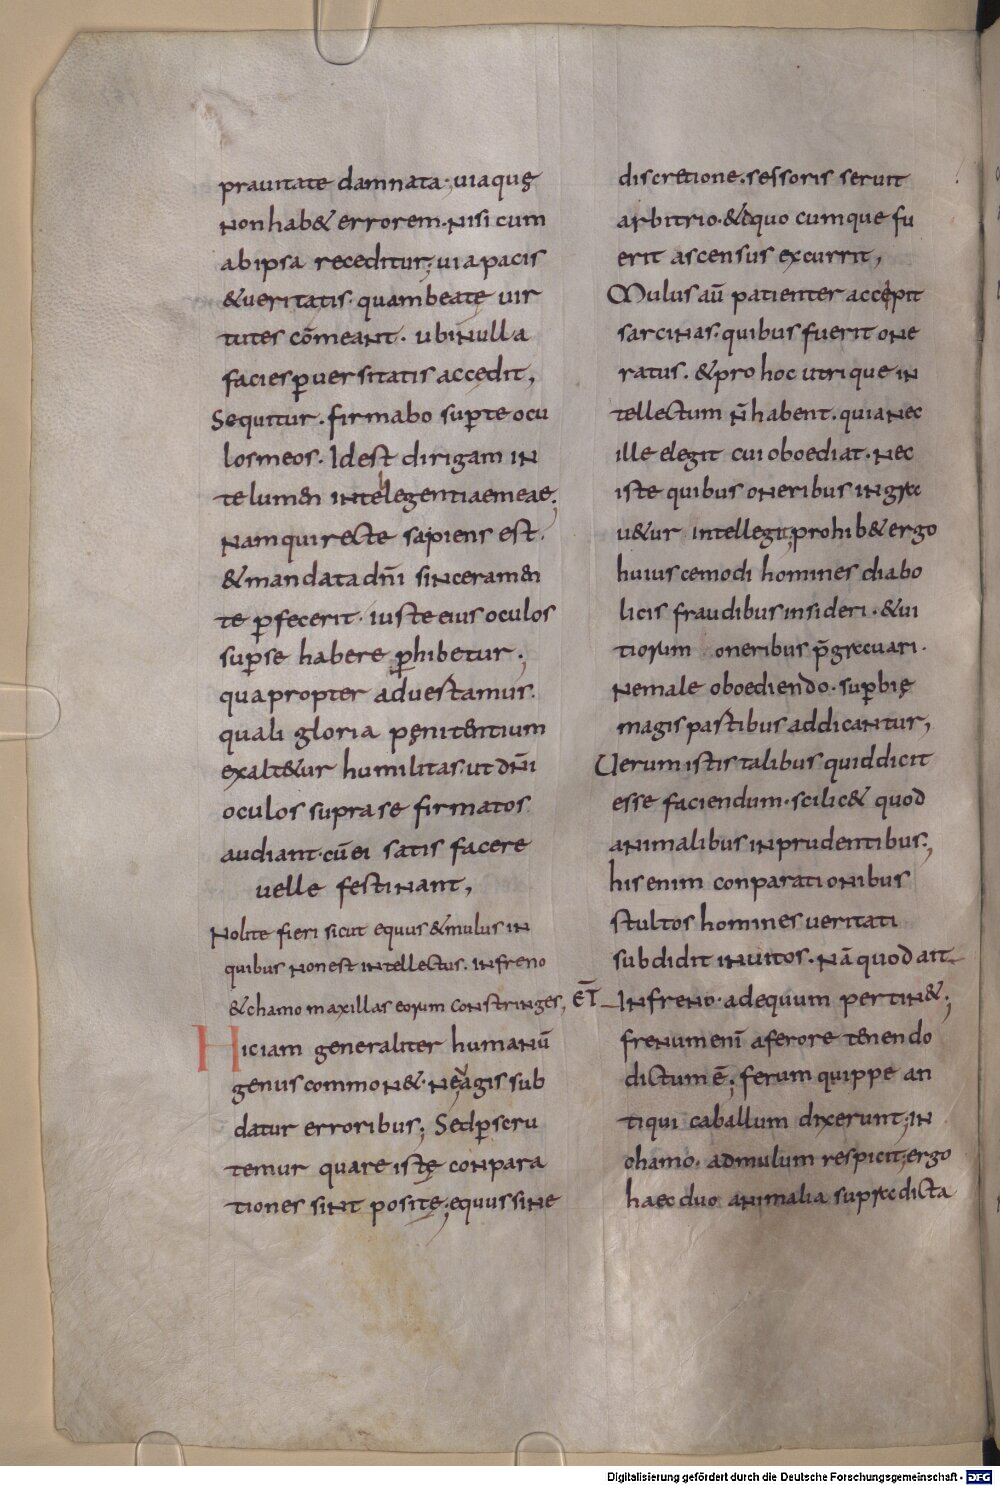 prauitate damnata·, uiaquę
non hab& errorem· nisi cum
ab ipsa receditur; uia pacis
& ueritatis· quam beatę uir
tutes cōmeant· ubi nulla
facies ꝑuersitatis accedit,
Sequitur· firmabo suꝑte ocu
los meos· Idest dirigam in
te lumen intellegentiae meae;
Nam qui recte sapiens est·
& mandata dn̄i sincera men
te ꝑfecerit· iuste eius oculos
suꝑ se habere ꝑhibetur;
quapropter aduertamus·
quali gloria pęnitentium
exalt&ur humilitas· ut dn̄i
oculos supra se firmatos
audiant· cū ei satis facere
uelle festinant,
Nolite fieri sicut equus & mulus in
quibus non est intellectus· in freno
& chamo maxillas eorum constringes, ET̄
Hic iam generaliter humanū
genus common&· ne uagis sub
datur erroribus; Sed ꝑscru
temur quare istę conpara
tiones sint positę; equus sine
discretione· sessoris seruit
arbitrio· & a quo cumque fu
erit ascensus excurrit,
Mulus aū patienter accepit
sarcinas· quibus fuerit one
ratus· & pro hoc utrique in
tellectum n̄ habent· quia nec
ille elegit cui oboediat· nec
iste quibus oneribus ingra
u&ur intellegit; prohib& ergo
huiuscemodi homines diabo
licis fraudibus insideri· & ui
tiorum oneribus p̄grauari·
Ne male oboediendo· suꝑbię
magis pastibus addicantur,
Uerum istis talibus quid dicit
esse faciendum· scilic& quod
animalibus inprudentibus;
his enim conparationibus
stultos homines ueritati
subdidit inuitos· Nā quod ait
In freno· ad equum pertin&;
frenum enī a fero retenendo
dictum ē; ferum quippe an
tiqui caballum dixerunt; in
chamo· ad mulum respicit; ergo
haec duo animalia supra dicta
Digitalisierung gefördert durch die Deutsche Forschungsgemeinschaft - DFG